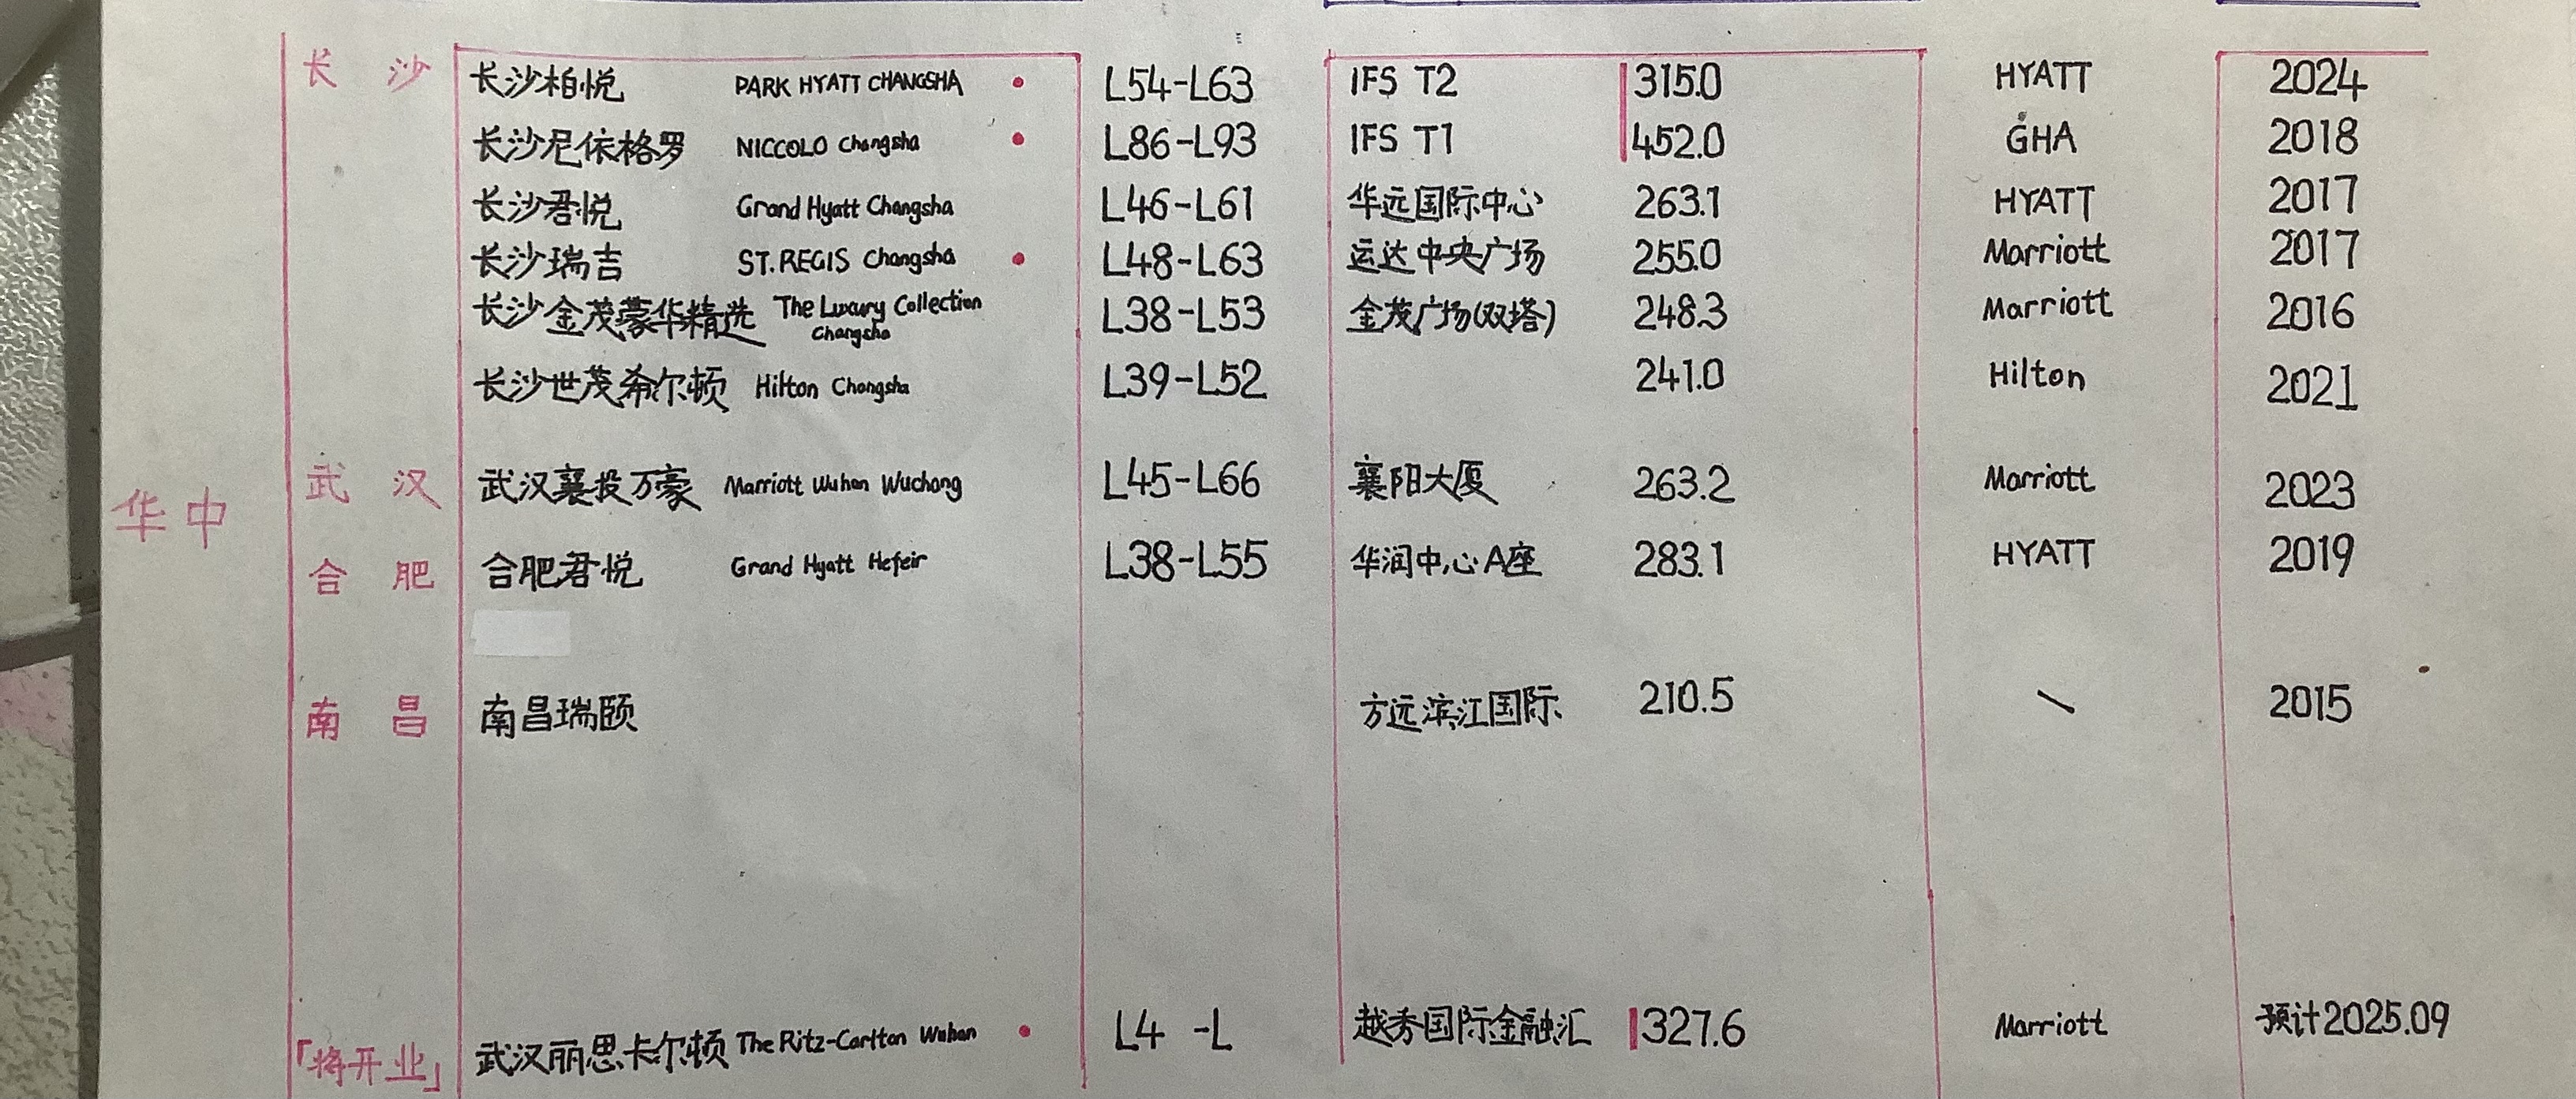 长 沙 长沙柏悦 PARK HYATT CHANGSHA L54-L63 IFS T2 315.0 HYATT 2024
长沙尼依格罗 NICCOLO Changsha L86-L93 IFS T1 452.0 GHA 2018
长沙君悦 Grand Hyatt Changsha L46-L61 华远国际中心 263.1 HYATT 2017
长沙瑞吉 ST.REGIS Changsha L48-L63 运达中央广场 255.0 Marriott 2017
长沙金茂豪华精选 The Luxury Collection L38-L53 金茂广场(双塔) 248.3 Marriott 2016
Changsha
长沙世茂希尔顿 Hilton Changsha L39-L52 241.0 Hilton 2021
武 汉 武汉襄投万豪 Marriott Wuhan Wuchang L45-L66 襄阳大厦 263.2 Marriott 2023
华中
合 肥 合肥君悦 Grand Hyatt Hefeir L38-L55 华润中心A座 283.1 HYATT 2019
南 昌 南昌瑞颐 方远滨江国际 210.5 2015
「将开业」 武汉丽思卡尔顿 The Ritz-Carlton Wuhan L4 -L 越秀国际金融汇 327.6 Marriott 预计2025.09